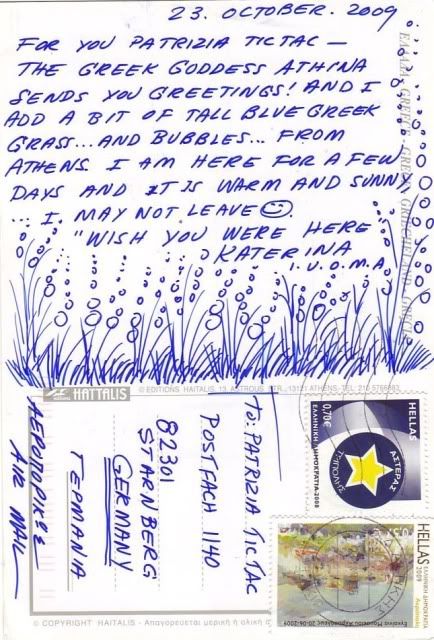 23. OCTOBER. 2009
FOR YOU PATRIZIA TICTAC —
THE GREEK GODDESS ATHINA
SENDS YOU GREETINGS! AND I
ADD A BIT OF TALL BLUE GREEK
GRASS... AND BUBBLES... FROM
ATHENS. I AM HERE FOR A FEW
DAYS AND IT IS WARM AND SUNNY
... I MAY NOT LEAVE ☺.
"WISH YOU WERE HERE
KATERINA
I.U.O.M.A
HAITALIS
© EDITIONS HAITALIS, 13, ASTROUS STR., 13121 ATHENS-TEL: 210 5766883
TO: PATRIZIA TICTAC
POSTFACH 1140
82301
STARNBERG
GERMANY
ΓΕΡΜΑΝΙΑ
ΑΕΡΟΠΟΡΙΚΩΣ
AIR MAIL
HELLAS
0,70€
ΕΛΛΗΝΙΚΗ ΔΗΜΟΚΡΑΤΙΑ-2008
ΑΣΤΕΡΑΣ
ΤΡΙΠΟΛΗΣ
HELLAS
2009
ΕΛΛΗΝΙΚΗ ΔΗΜΟΚΡΑΤΙΑ
Εγκαίνια Μουσείου Ακροπόλεως 20-06-2009
© COPYRIGHT HAITALIS - Απαγορεύεται μερική ή ολική